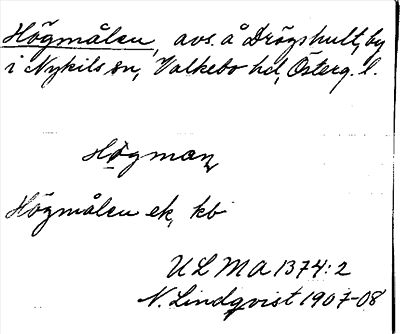 Högmålen, avs. å Drögshult, by
i Nykils sn, Valkebo hd, Österg. l.
Högman
Högmålen ek, kb
ULMA 1374:2
N. Lindqvist 1907-08